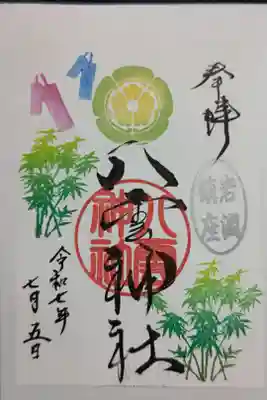 奉拝
鎮座
八雲神社
八雲
神社
令和七年
七月五日